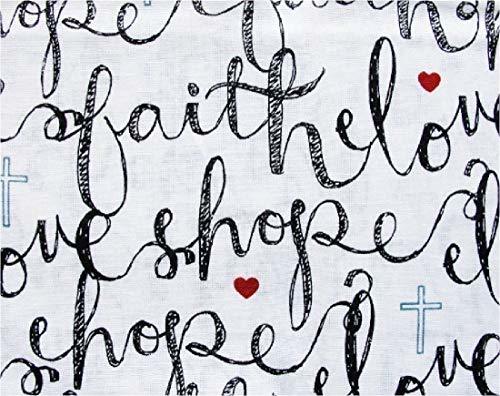 hope
faith lov
ove hope
hope love